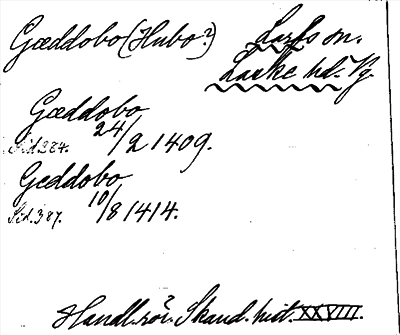 Gæddobo (Hubo?) Larfs sn.
Laske hd. Vg.
Gæddobo
Sid. 324. 24/2 1409.
Geddobo
Sid. 387. 10/8 1414.
Handl. rör. Skand. hist. XXVIII.